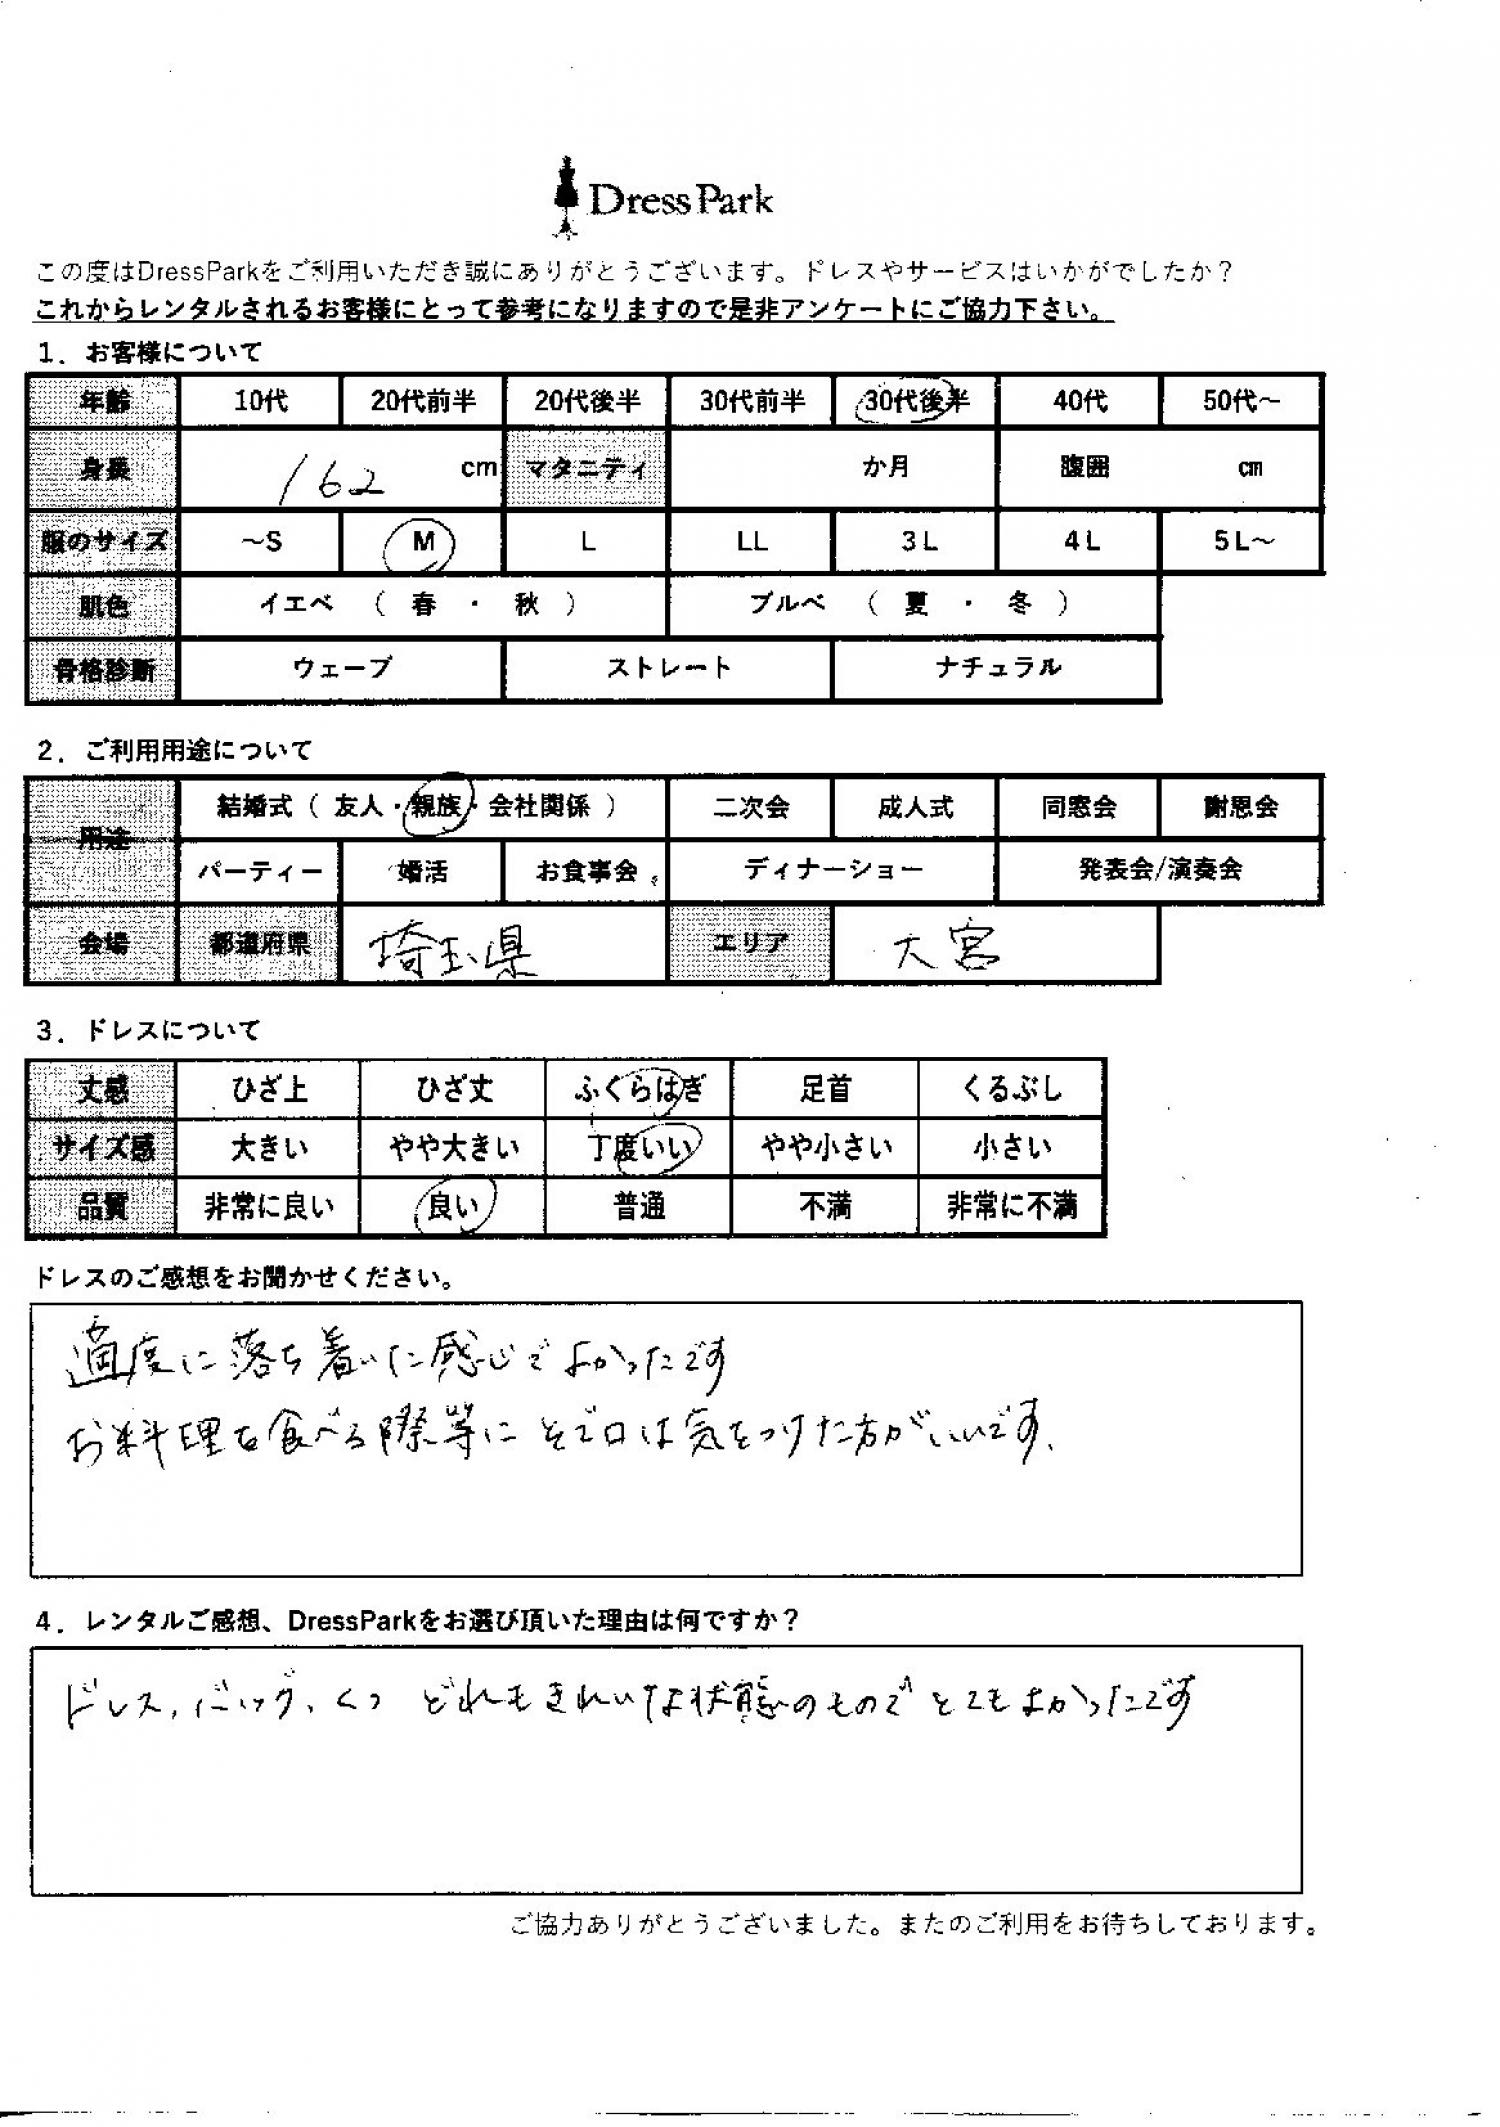 DressPark
この度はDressParkをご利用いただき誠にありがとうございます。ドレスやサービスはいかがでしたか？
これからレンタルされるお客様にとって参考になりますので是非アンケートにご協力下さい。
1．お客様について
年齢 10代 20代前半 20代後半 30代前半 30代後半 40代 50代～
身長 162 cm マタニティ か月 腹囲 cm
服のサイズ ～S M L LL 3L 4L 5L～
肌色 イエベ （ 春 ・ 秋 ） ブルベ （ 夏 ・ 冬 ）
骨格診断 ウェーブ ストレート ナチュラル
2．ご利用用途について
用途 結婚式（ 友人・親族・会社関係 ） 二次会 成人式 同窓会 謝恩会
パーティー 婚活 お食事会 ディナーショー 発表会/演奏会
会場 都道府県 埼玉県 エリア 大宮
3．ドレスについて
丈感 ひざ上 ひざ丈 ふくらはぎ 足首 くるぶし
サイズ感 大きい やや大きい 丁度いい やや小さい 小さい
品質 非常に良い 良い 普通 不満 非常に不満
ドレスのご感想をお聞かせください。
適度に落ち着いた感じでよかったです
お料理を食べる際等にそで口は気をつけた方がいいです、
4．レンタルご感想、DressParkをお選び頂いた理由は何ですか？
ドレス，バッグ，くつ どれもきれいな状態のものでとてもよかったです
ご協力ありがとうございました。またのご利用をお待ちしております。